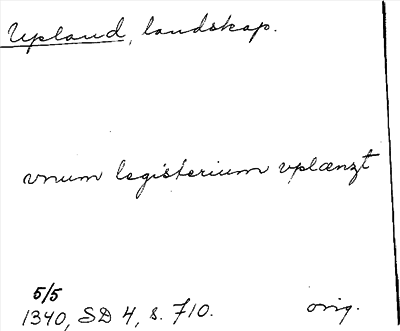 Upland, landskap.
vnum legisterium vplænzt
5/5
1340, SD 4, s. 710. orig.